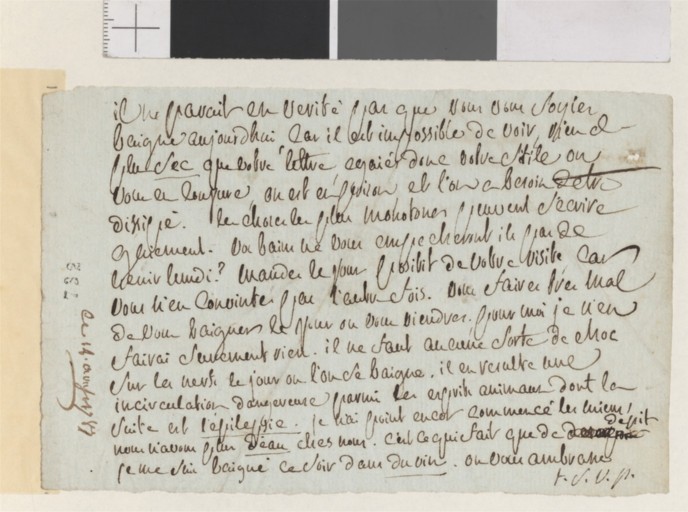 il ne paroit en verité pas que vous vous soyies
baigné aujourdhui car il est impossible de voir rien de
plus sec que votre lettre egaiés donc votre stile on
vous en conjure, on est en prison et l'on a besoin detre
dissipé. les choses les plus monotones peuvent s'ecrire
gaiement. vos bains ne vous empecheront ils pas de
venir lundi? mandes le jour positif de votre visite car
vous n'en convintes pas l'autre fois. vous faires tres mal
de vous baigner le jour ou vous viendres. pour moi je n'en
fairai seurement rien. il ne faut aucune sorte de choc
sur les nerfs le jour ou l'on se baigne. il en resulte une
incirculation dangereuse parmi les esprits animaux dont la
suite est l'epilepsie. je n'ai point encor commencé les miens,
nous n'avons plus d'eau ches nous. c'est ce qui fait que de depit
je me suis baigné ce soir dans du vin. on vous embrasse
t. S. V. p.
332